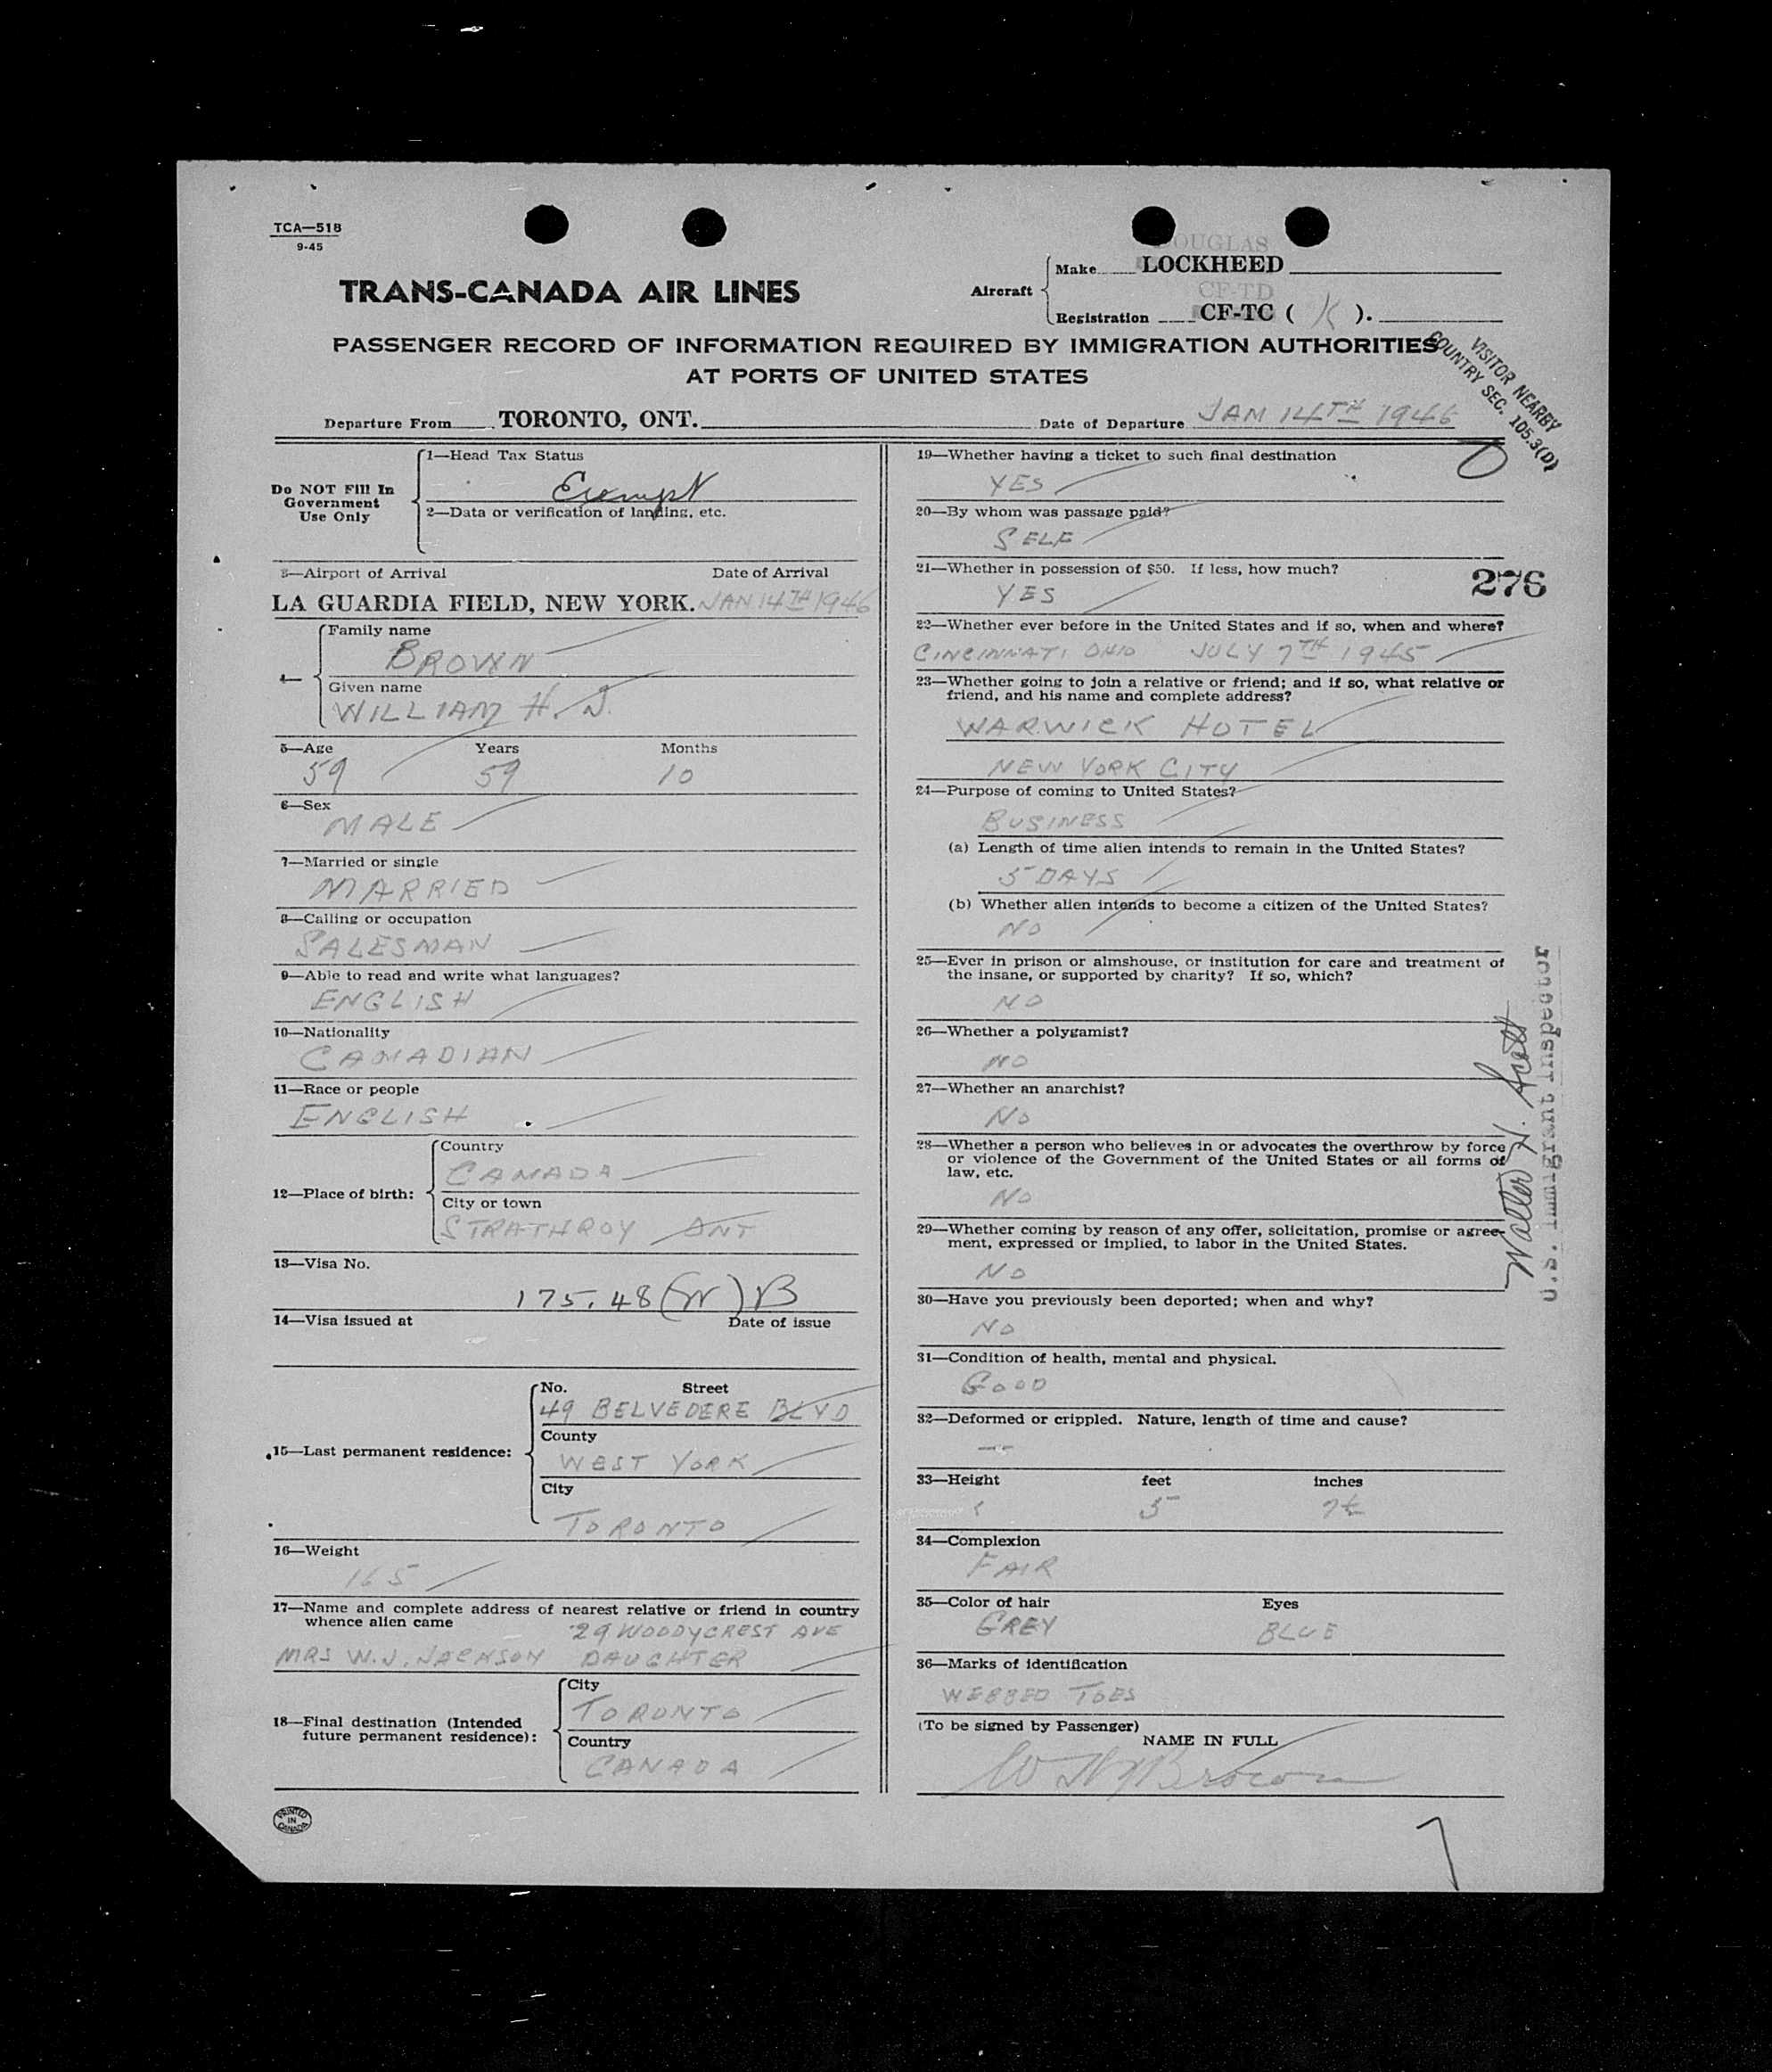 TCA—518
9-45
DOUGLAS
Make LOCKHEED
TRANS-CANADA AIR LINES
Aircraft
CF-TD
Registration CF-TC ( K ).
PASSENGER RECORD OF INFORMATION REQUIRED BY IMMIGRATION AUTHORITIES
AT PORTS OF UNITED STATES
VISITOR NEARBY
COUNTRY SEC. 105.3(D)
Departure From TORONTO, ONT. Date of Departure JAN 14TH 1946
Do NOT Fill In
Government
Use Only
1—Head Tax Status
Exempt
2—Data or verification of landing, etc.
3—Airport of Arrival Date of Arrival
LA GUARDIA FIELD, NEW YORK. JAN 14TH 1946
4—
Family name
BROWN
Given name
WILLIAM H. J.
5—Age Years Months
59 59 10
6—Sex
MALE
7—Married or single
MARRIED
8—Calling or occupation
SALESMAN
9—Able to read and write what languages?
ENGLISH
10—Nationality
CANADIAN
11—Race or people
ENGLISH
12—Place of birth:
Country
CANADA
City or town
STRATHROY ONT
13—Visa No.
175.48 (W) B
14—Visa issued at Date of issue
15—Last permanent residence:
No. Street
49 BELVEDERE BLVD
County
WEST YORK
City
TORONTO
16—Weight
165
17—Name and complete address of nearest relative or friend in country
whence alien came
29 WOODYCREST AVE
MRS W.J. JACKSON DAUGHTER
18—Final destination (Intended
future permanent residence):
City
TORONTO
Country
CANADA
PRINTED
IN
CANADA
19—Whether having a ticket to such final destination
YES
20—By whom was passage paid?
SELF
21—Whether in possession of $50. If less, how much?
YES
276
22—Whether ever before in the United States and if so, when and where?
CINCINNATI OHIO JULY 7TH 1945
23—Whether going to join a relative or friend; and if so, what relative or
friend, and his name and complete address?
WARWICK HOTEL
NEW YORK CITY
24—Purpose of coming to United States?
BUSINESS
(a) Length of time alien intends to remain in the United States?
5 DAYS
(b) Whether alien intends to become a citizen of the United States?
NO
25—Ever in prison or almshouse, or institution for care and treatment of
the insane, or supported by charity? If so, which?
NO
26—Whether a polygamist?
NO
27—Whether an anarchist?
NO
28—Whether a person who believes in or advocates the overthrow by force
or violence of the Government of the United States or all forms of
law, etc.
NO
29—Whether coming by reason of any offer, solicitation, promise or agree-
ment, expressed or implied, to labor in the United States.
NO
30—Have you previously been deported; when and why?
NO
31—Condition of health, mental and physical.
GOOD
32—Deformed or crippled. Nature, length of time and cause?
—
33—Height feet inches
5
34—Complexion
FAIR
35—Color of hair Eyes
GREY BLUE
36—Marks of identification
WEBBED TOES
(To be signed by Passenger)
NAME IN FULL
W H J Brown
Walter H. Scott
U.S. Immigrant Inspector
7